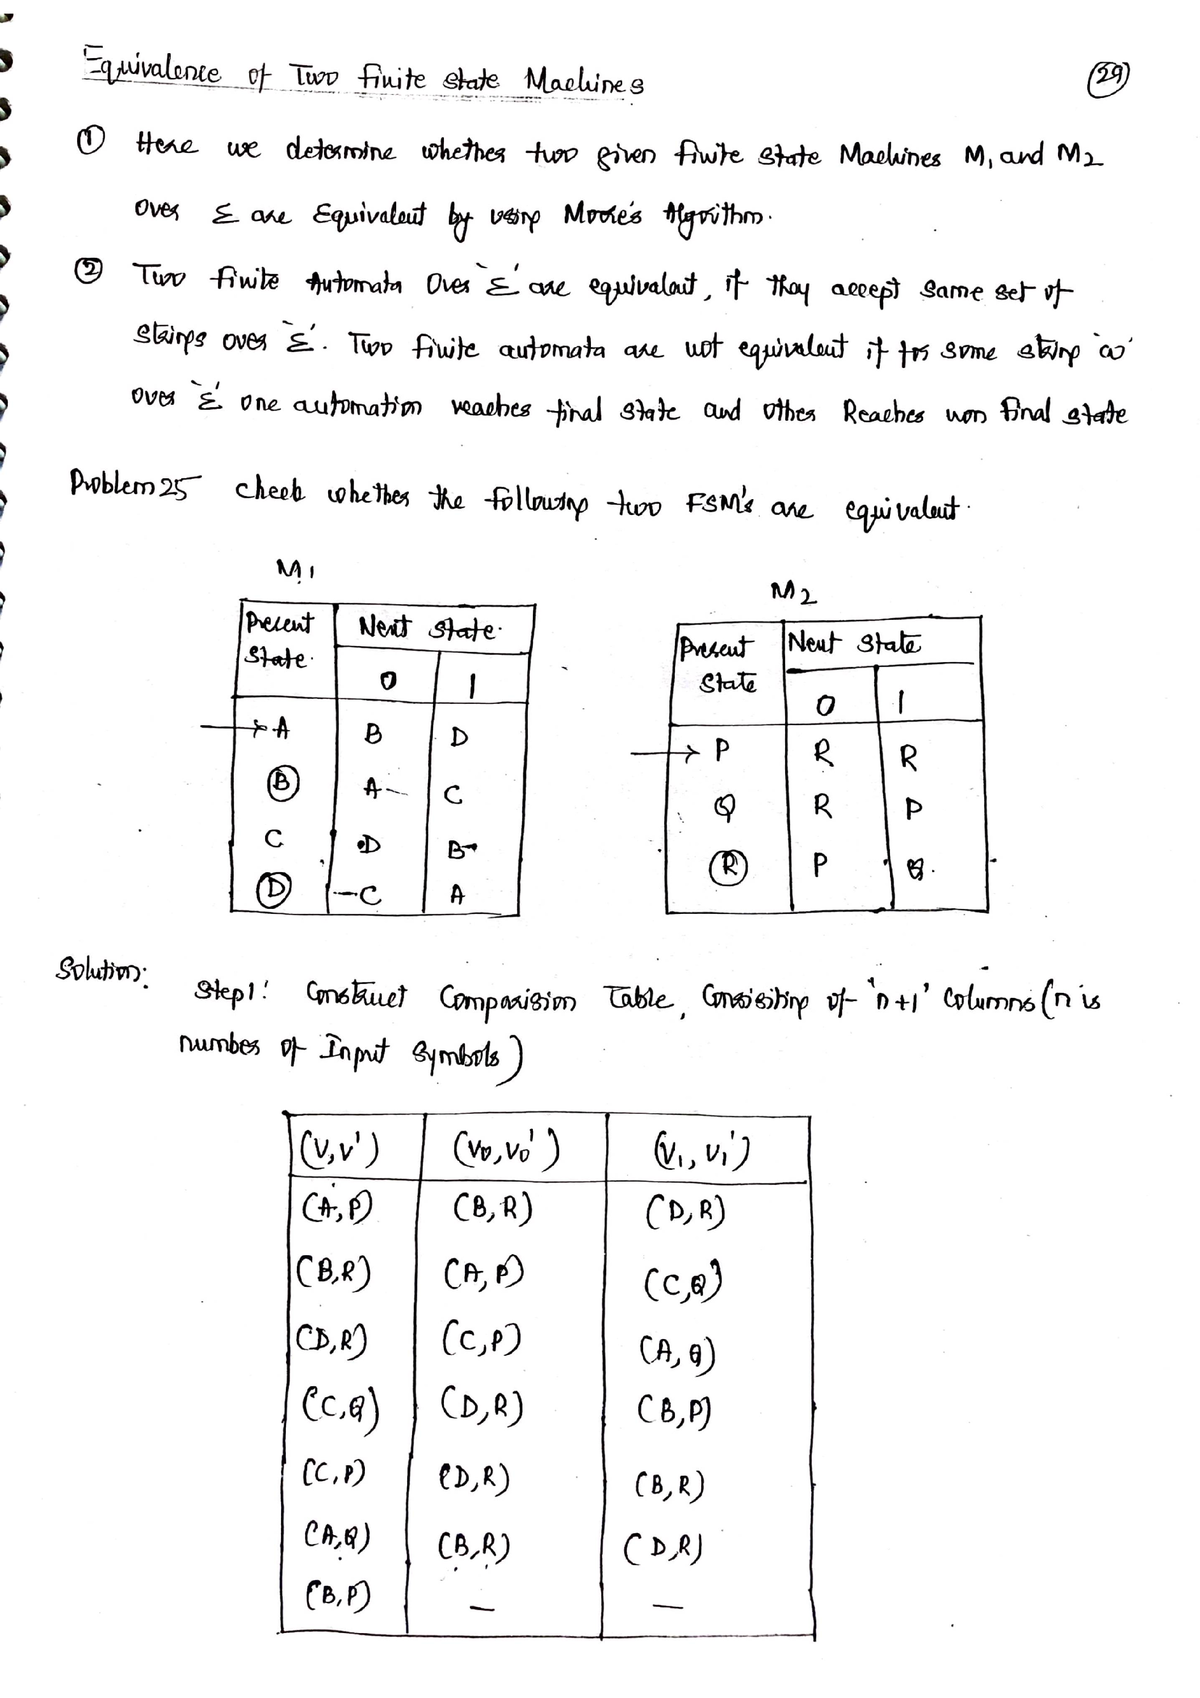 Equivalence of Two finite state Machines
29
① Here we determine whether two given finite state Machines M1 and M2
over Σ are Equivalent by using Moore's Algorithm.
② Two finite Automata Over 'Σ' are equivalent, if they accept same set of
strings over 'Σ'. Two finite automata are not equivalent if for some string 'ω'
over 'Σ' one automation reaches final state and other Reaches non final state
Problem 25 check whether the following two FSM's are equivalent.
M1
Present State. Next state.
0 1
→ A B D
B A C
C D B
D C A
M2
Present State Next State
0 1
→ P R R
Q R P
R P Q.
Solution:
Step1: Construct Comparision Table, Consisiting of 'n+1' columns (n is
number of Input symbols)
(V,V') (V0,V0') (V1,V1')
(A,P) (B,R) (D,R)
(B,R) (A,P) (C,Q)
(D,R) (C,P) (A,Q)
(C,Q) (D,R) (B,P)
(C,P) (D,R) (B,R)
(A,Q) (B,R) (D,R)
(B,P) — —